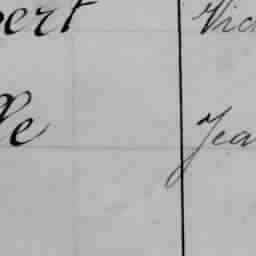 bert Vic
le Jea